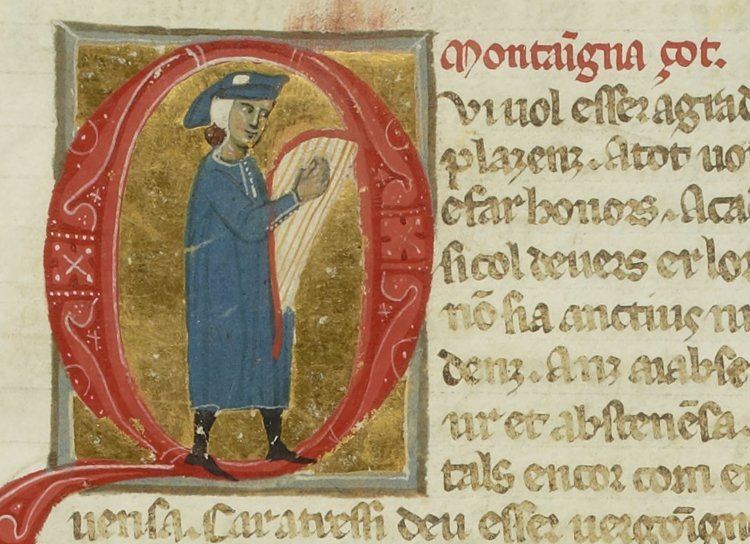 Montaũgna çot.
Vi uol esser agrad
plazenz. A tot uo
e far honors. A ca
si col deuers er lo
nõ sia anctius n
denz. Anz mabse
ur et abstenẽsa
tals encor com e
uensa. Car atressi deu esser uergõign